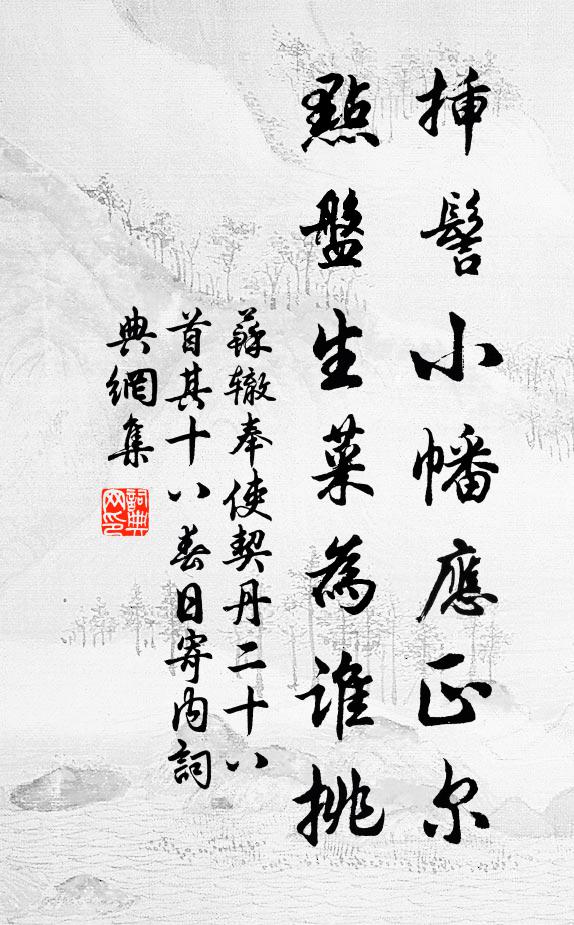 插髻小幡應正尔
點盤生菜為誰挑
蘇辙奉使契丹二十八
首其十八春日寄內詞
典網集
詞典
网印